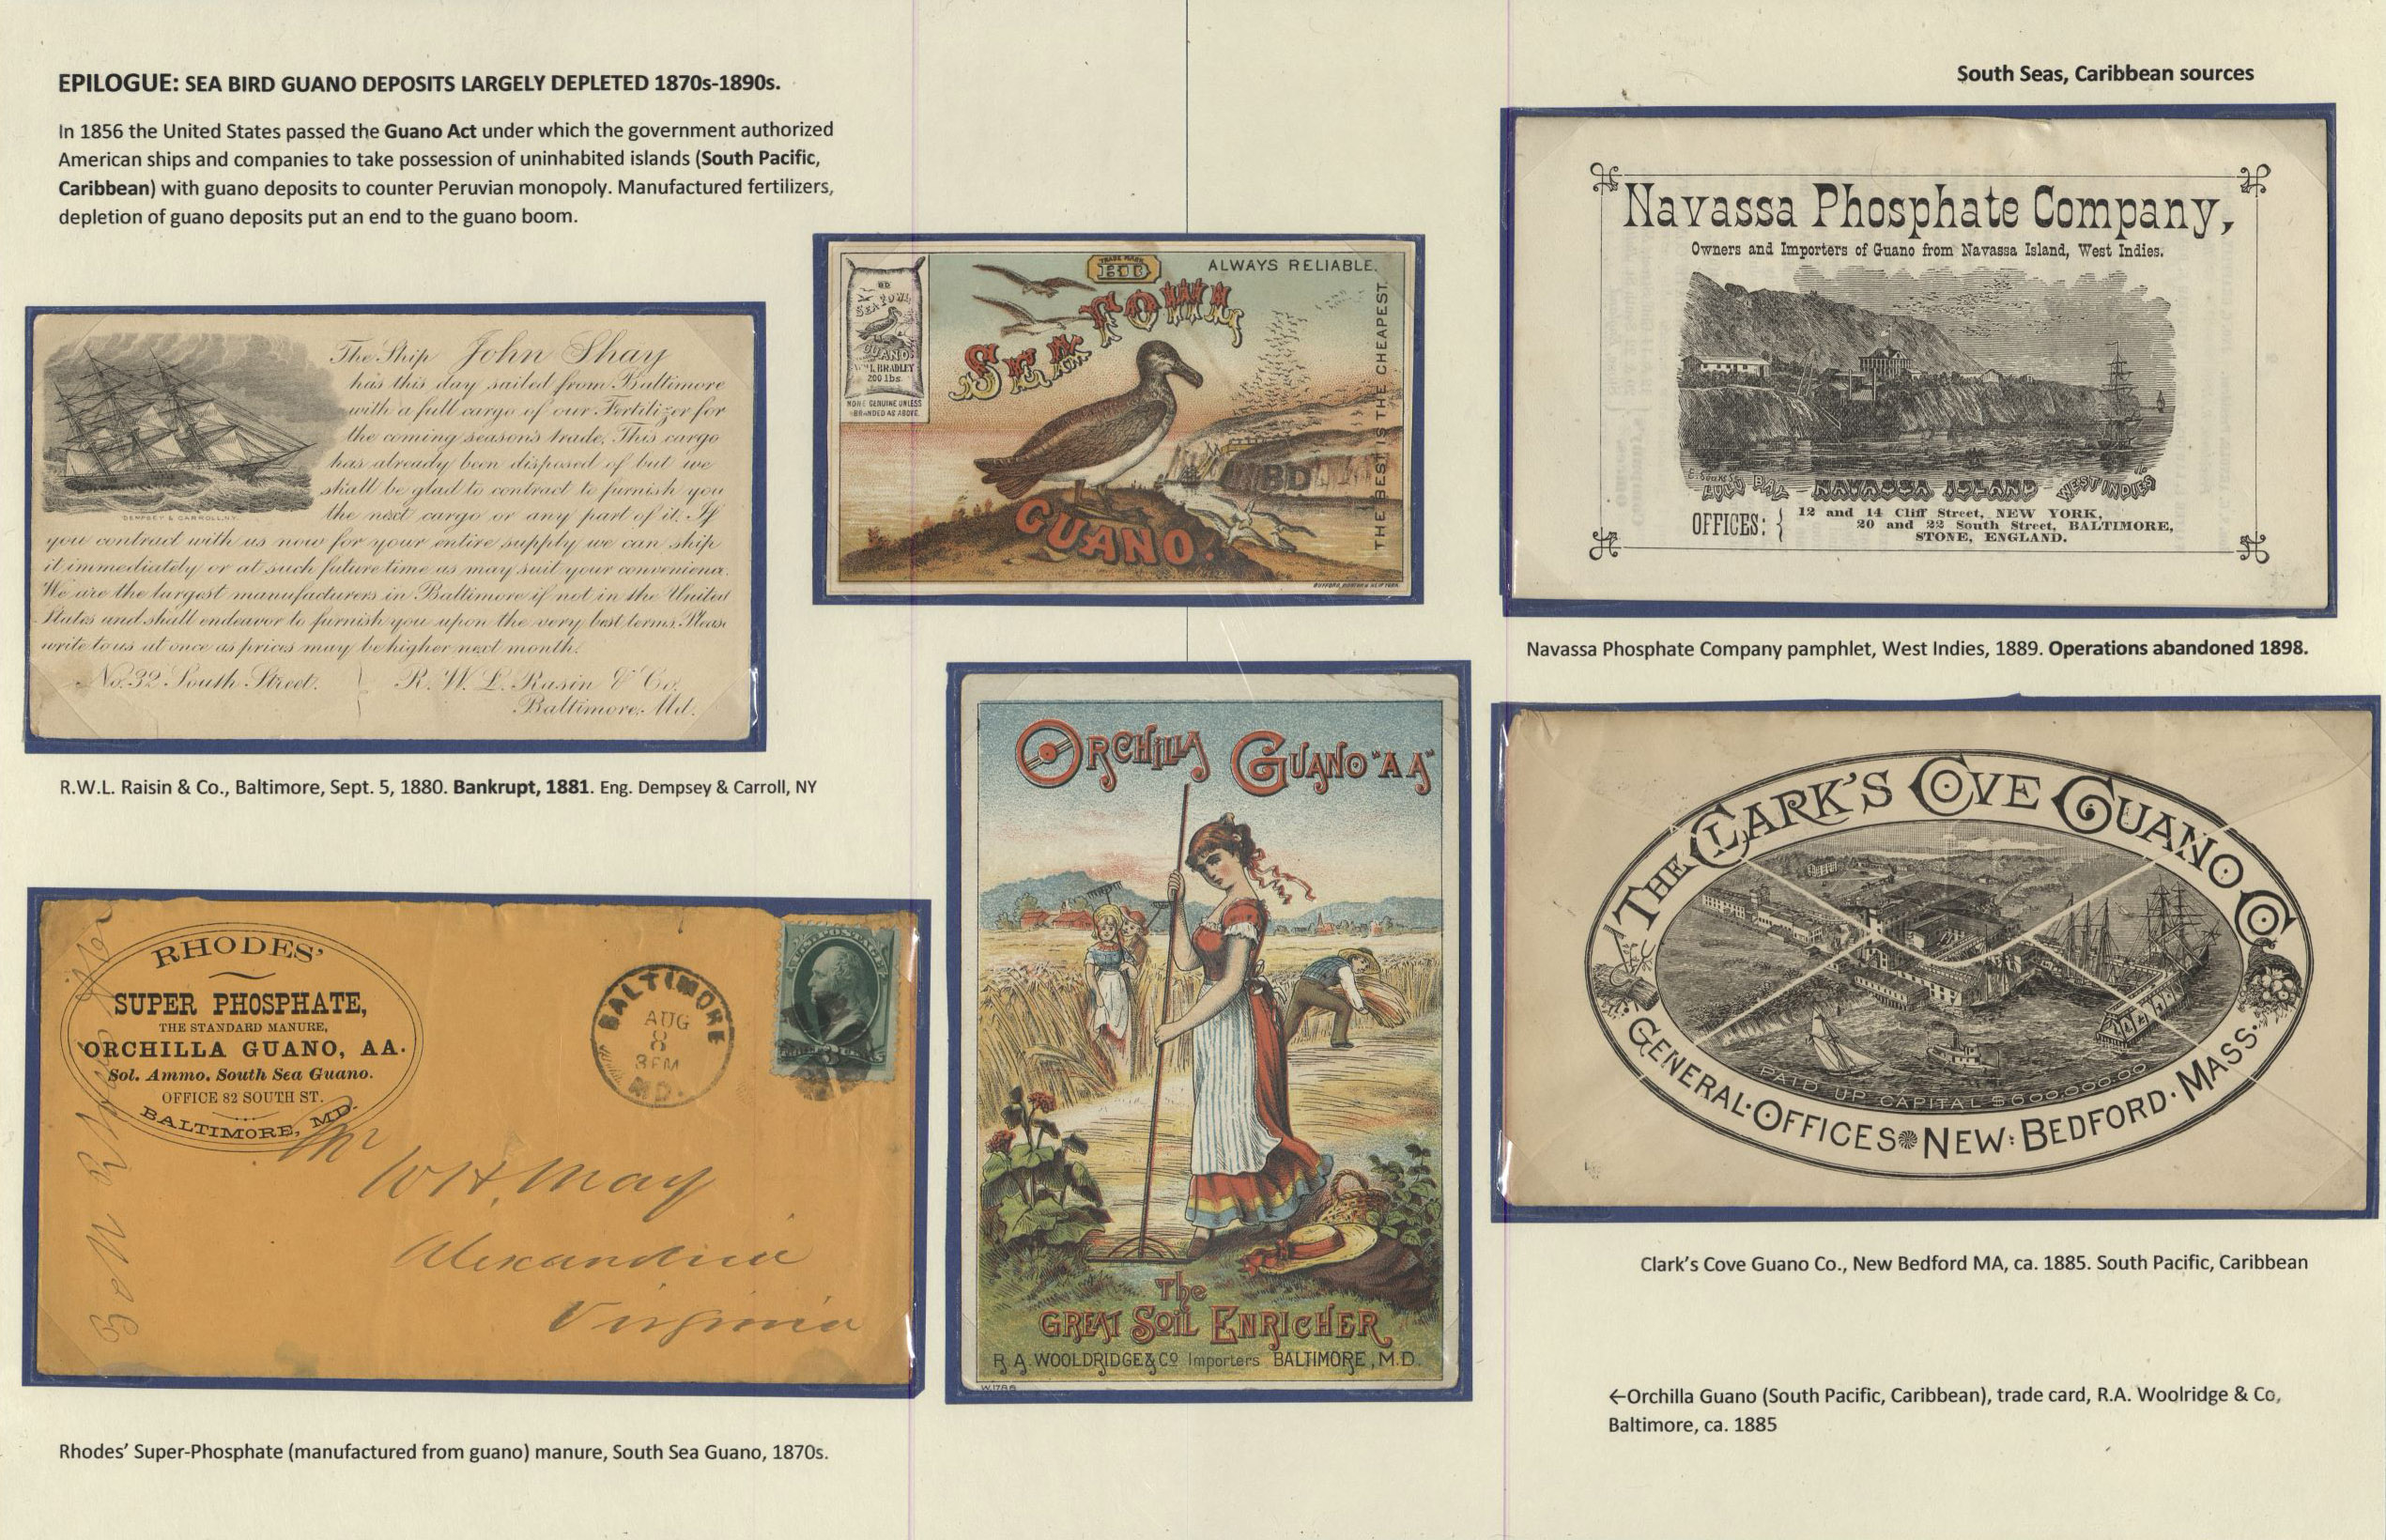 EPILOGUE: SEA BIRD GUANO DEPOSITS LARGELY DEPLETED 1870s-1890s.
In 1856 the United States passed the Guano Act under which the government authorized
American ships and companies to take possession of uninhabited islands (South Pacific,
Caribbean) with guano deposits to counter Peruvian monopoly. Manufactured fertilizers,
depletion of guano deposits put an end to the guano boom.
South Seas, Caribbean sources
The Ship John Shay
has this day sailed from Baltimore
with a full cargo of our Fertilizer for
the coming season's trade. This cargo
has already been disposed of but we
shall be glad to contract to furnish you
the next cargo or any part of it. If
you contract with us now for your entire supply we can ship
it immediately or at such future time as may suit your convenience.
We are the largest manufacturers in Baltimore if not in the United
States and shall endeavor to furnish you upon the very best terms. Please
write to us at once as prices may be higher next month.
No. 32 South Street.
R. W. L. Rasin & Co.
Baltimore, Md.
DEMPSEY & CARROLL, N.Y.
R.W.L. Raisin & Co., Baltimore, Sept. 5, 1880. Bankrupt, 1881. Eng. Dempsey & Carroll, NY
TRADE MARK
BD
ALWAYS RELIABLE.
SEA FOWL
GUANO.
THE BEST IS THE CHEAPEST.
BD
BD
SEA FOWL
GUANO
WM L BRADLEY
200 lbs
NONE GENUINE UNLESS
BRANDED AS ABOVE.
BUFFORD, BOSTON & NEW YORK.
Navassa Phosphate Company,
Owners and Importers of Guano from Navassa Island, West Indies.
LULU BAY - NAVASSA ISLAND - WEST INDIES
OFFICES:
12 and 14 Cliff Street, NEW YORK,
20 and 22 South Street, BALTIMORE,
STONE, ENGLAND.
Navassa Phosphate Company pamphlet, West Indies, 1889. Operations abandoned 1898.
RHODES'
SUPER PHOSPHATE,
THE STANDARD MANURE,
ORCHILLA GUANO, AA.
Sol. Ammo. South Sea Guano.
OFFICE 82 SOUTH ST.
BALTIMORE, MD.
BALTIMORE
AUG
8
3PM
MD.
U.S. POSTAGE
Mr
W H. May
Alexandria
Virginia
Rhodes' Super-Phosphate (manufactured from guano) manure, South Sea Guano, 1870s.
ORCHILLA GUANO "AA"
The
GREAT SOIL ENRICHER
R. A. WOOLDRIDGE & CO Importers BALTIMORE, M.D.
THE CLARK'S COVE GUANO CO
PAID UP CAPITAL $600,000.00
GENERAL · OFFICES NEW : BEDFORD · MASS.
Clark's Cove Guano Co., New Bedford MA, ca. 1885. South Pacific, Caribbean
←Orchilla Guano (South Pacific, Caribbean), trade card, R.A. Woolridge & Co,
Baltimore, ca. 1885